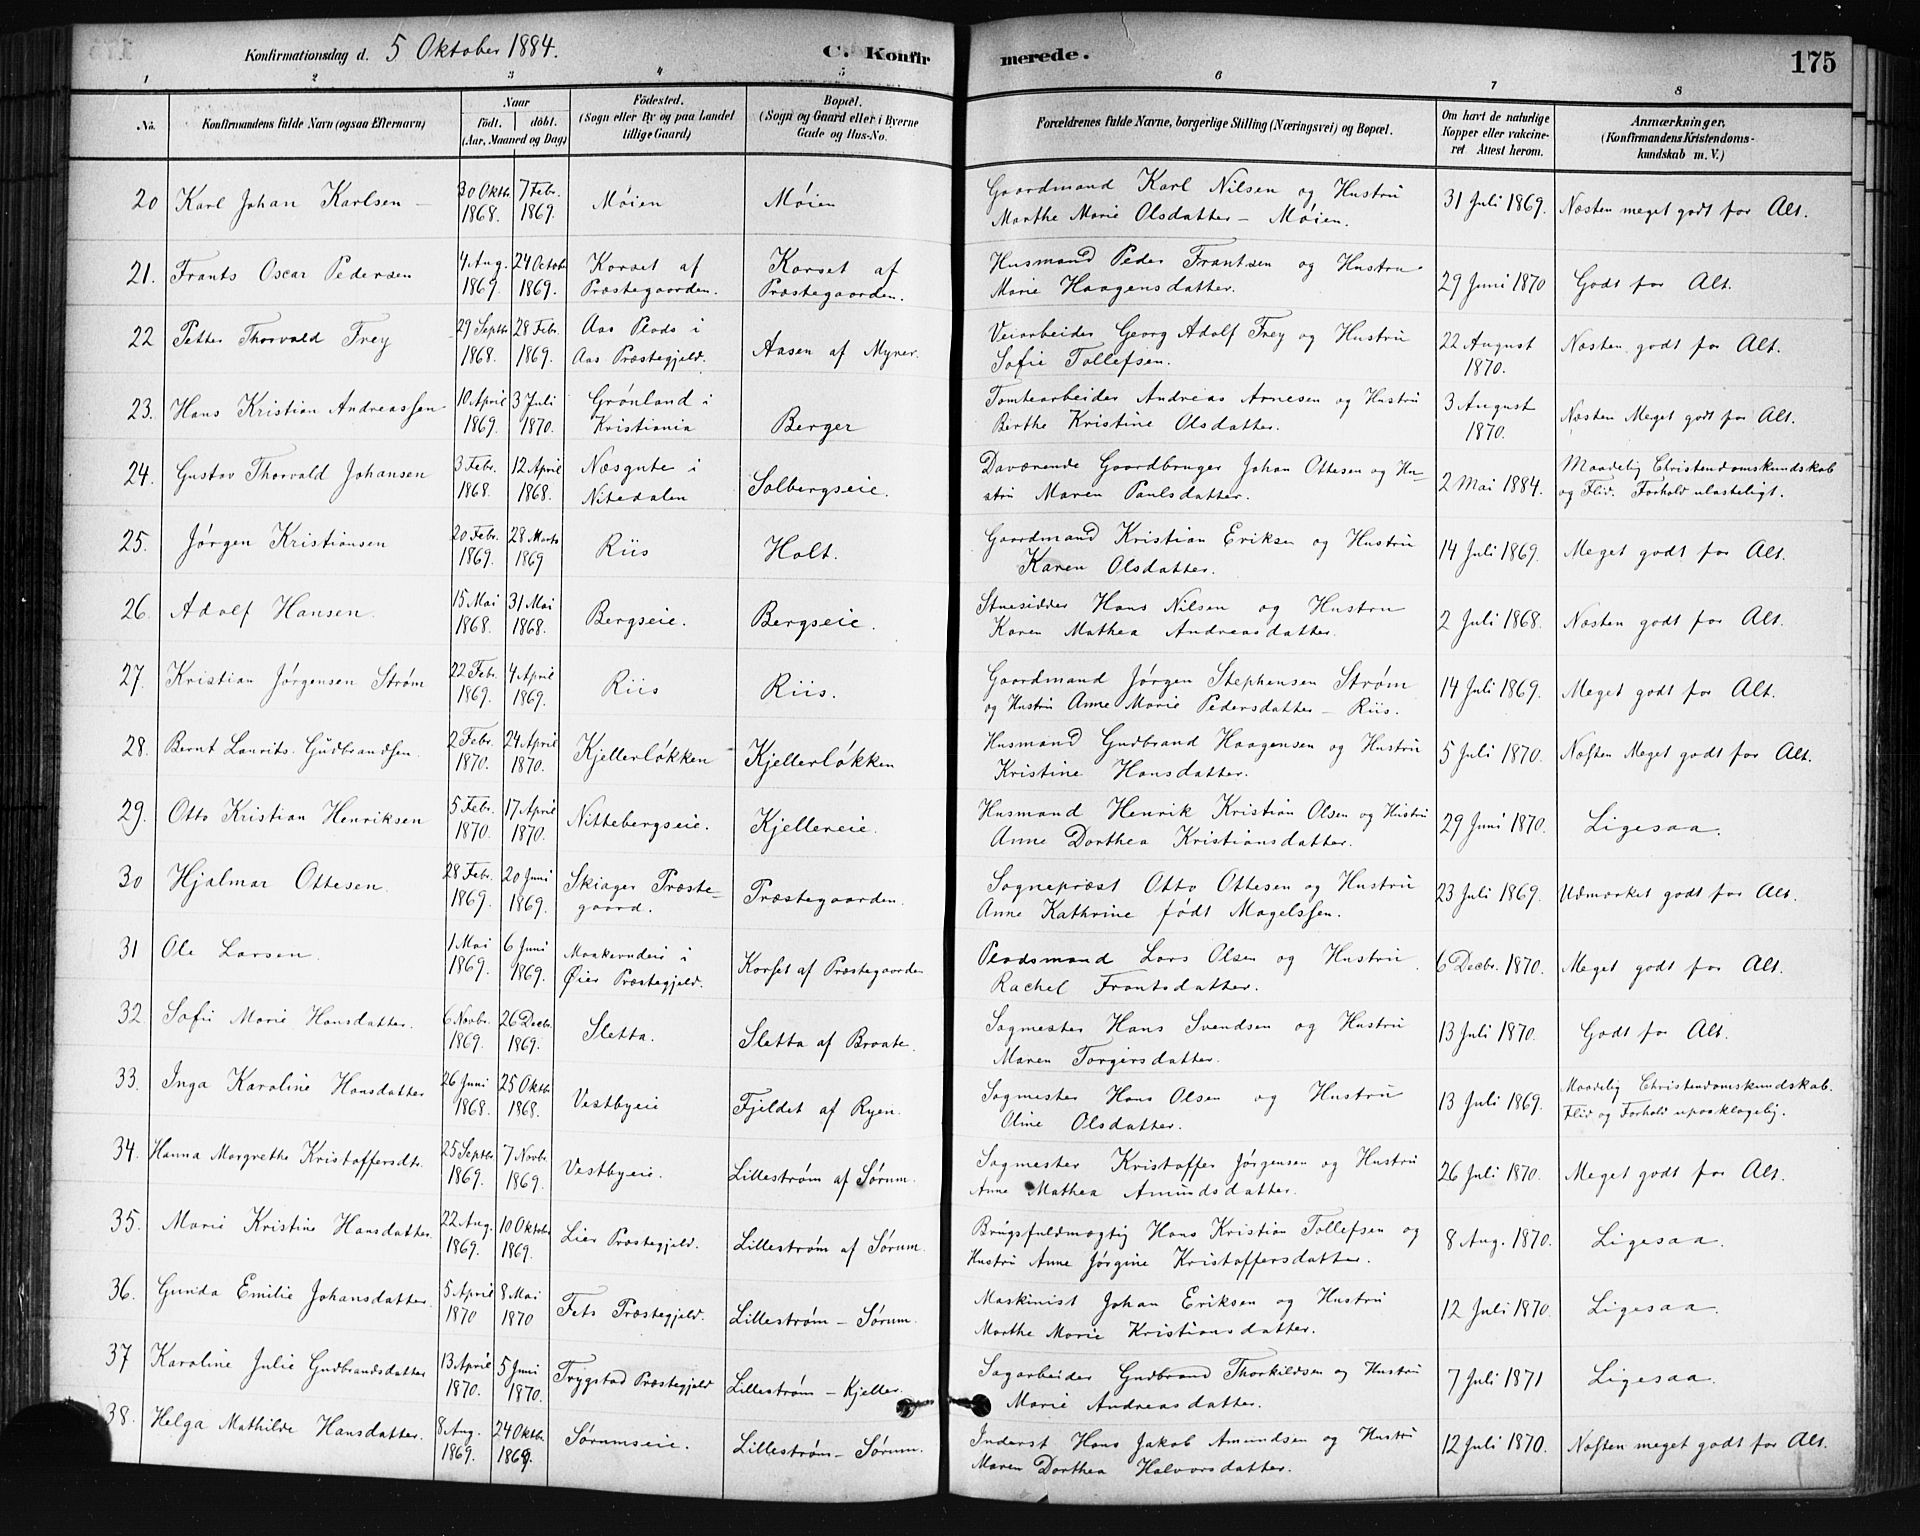 Konfirmationsdag d. 5 Oktober 1884. C. Konfirmerede. 175
1 2 3 4 5 6 7 8
No. Konfirmandens fulde Navn (ogsaa Efternavn) Naar födt, döbt. (Aar, Maaned og Dag) Födested. (Sogn eller By og paa Landet tillige Gaard) Bopæl. (Sogn og Gaard eller i Byerne Gade og Hus-No. Forældrenes fulde Navne, borgerlige Stilling (Næringsvei) og Bopæl. Om havt de naturlige Kopper eller vakcineret Attest herom. Anmærkninger, (Konfirmandens Kristendomskundskab m. V.)
20 Karl Johan Karlsen – 30 Oktbr. 1868. 7 Febr. 1869. Møien Møien Gaardmand Karl Nilsen og Hustru Marthe Marie Olsdatter – Møien. 31 Juli 1869. Næsten meget godt for Alt.
21. Frants Oscar Pedersen 4 Aug. 1869. 24 Octobr 1869. Korset af Præstegaarden. Korset af Præstegaarden. Husmand Peder Frantsen og Hustru Marie Haagensdatter. 29 Juni 1870 Godt for Alt.
22 Petter Thorvald Frey 29 Septbr 1868. 28 Febr. 1869. Aas Plads i Aas Præstegjeld. Aasen af Myrer. Veiarbeider Georg Adolf Frey og Hustru Sofie Tollefsen. 22 August 1870. Næsten godt for Alt.
23. Hans Kristian Andreassen 10 April 1869. 3 Juli 1870. Grønland i Kristiania Berger Tomtearbeider Andreas Arnesen og Hustru Berthe Kristine Olsdatter. 3 August 1870. Næsten Meget godt for Alt.
24. Gustav Thorvald Johansen 3 Febr. 1868. 12 April 1868. Næsgute i Nitedalen Solbergseie. Daværende Gaardbruger Johan Ottesen og Hustru Maren Paulsdatter. 2 Mai 1884. Maadelig Christendomskundskab og Flid. Forhold ulasteligt.
25. Jørgen Kristiansen 20 Febr. 1869. 28 Marts 1869 Riis Holt. Gaardmand Kristian Eriksen og Hustru Karen Olsdatter. 14 Juli 1869. Meget godt for Alt.
26. Adolf Hansen. 15 Mai 1868. 31 Mai 1868. Bergseie. Bergseie. Stuesidder Hans Nilsen og Hustru Karen Mathea Andreasdatter. 2 Juli 1868. Næsten godt for Alt.
27. Kristian Jørgensen Strøm 22 Febr. 1869. 4 April 1869. Riis Riis. Gaardmand Jørgen Stephensen Strøm og Hustru Anne Marie Pedersdatter – Riis. 14 Juli 1869. Meget godt for Alt.
28. Bernt Laurits Gudbrandsen. 2 Febr. 1870. 24 April 1870. Kjellerløkken Kjellerløkken Husmand Gudbrand Haagensen og Hustru Kristine Hansdatter. 5 Juli 1870. Næsten Meget godt for Alt.
29. Otto Kristian Henriksen 5 Febr. 1870. 17 April 1870. Nittebergseie. Kjellereie. Husmand Henrik Kristian Olsen og Hustru Anne Dorthea Kristiansdatter. 29 Juni 1870. Ligesaa.
30 Hjalmar Ottesen. 28 Febr. 1869. 20 Juni 1869. Skiager Præstegaard. Præstegaarden. Sognepræst Otto Ottesen og Hustru Anne Kathrine født Magelssen. 23 Juli 1869. Udmærket godt for Alt.
31 Ole Larsen. 1 Mai 1869. 6 Juni 1869. i Øier Præstegjeld. Korset af Præstegaarden Pladsmand Lars Olsen og Hustru Rachel Frantsdatter. 6 Decbr. 1870. Meget godt for Alt.
32. Sofie Marie Hansdatter. 6 Novbr. 1869. 26 Decbr. 1869. Sletta. Sletta af Braate. Sagmester Hans Svendsen og Hustru Maren Torgersdatter. 13 Juli 1870. Godt for Alt.
33. Inga Karoline Hansdatter 26 Juni 1868. 25 Oktbr 1868. Vestbyeie Fjeldet af Ryen. Sagmester Hans Olsen og Hustru Oline Olsdatter. 13 Juli 1869. Maadelig Christendomskundskab. Flid og Forhold upaaklagelig.
34. Hanna Margrethe Kristoffersdtr. 25 Septbr 1869. 7 Novbr. 1869. Vestbyeie. Lillestrøm af Sørum. Sagmester Kristoffer Jørgensen og Hustru Anne Mathea Amundsdatter. 26 Juli 1870. Meget godt for Alt.
35. Marie Kristine Hansdatter. 22 Aug. 1869. 10 Oktober 1869. Lier Præstegjeld. Lillestrøm af Sørum. Brugsfuldmægtig Hans Kristian Tollefsen og Hustru Anne Jørgine Kristoffersdatter. 8 Aug. 1870. Ligesaa.
36. Gunda Emilie Johansdatter. 5 April 1870 8 Mai 1870 Fets Præstegjeld. Lillestrøm – Sørum. Maskinist Johan Eriksen og Hustru Marthe Marie Kristiansdatter. 12 Juli 1870. Ligesaa.
37 Karoline Julie Gudbrandsdatter 13 April 1870. 5 Juni 1870. Trygstad Præstegjeld Lillestrøm – Kjeller. Sagarbeider Gudbrand Thorkildsen og Hustru Marie Andreasdatter. 7 Juli 1871 Ligesaa.
38. Helga Mathilde Hansdatter. 8 Aug. 1869. 24 Oktbr. 1869. Sørumseie. Lillestrøm – Sørum. Inderst Hans Jakob Amundsen og Hustru Maren Dorthea Halvorsdatter. 12 Juli 1870. Næsten meget godt for Alt.